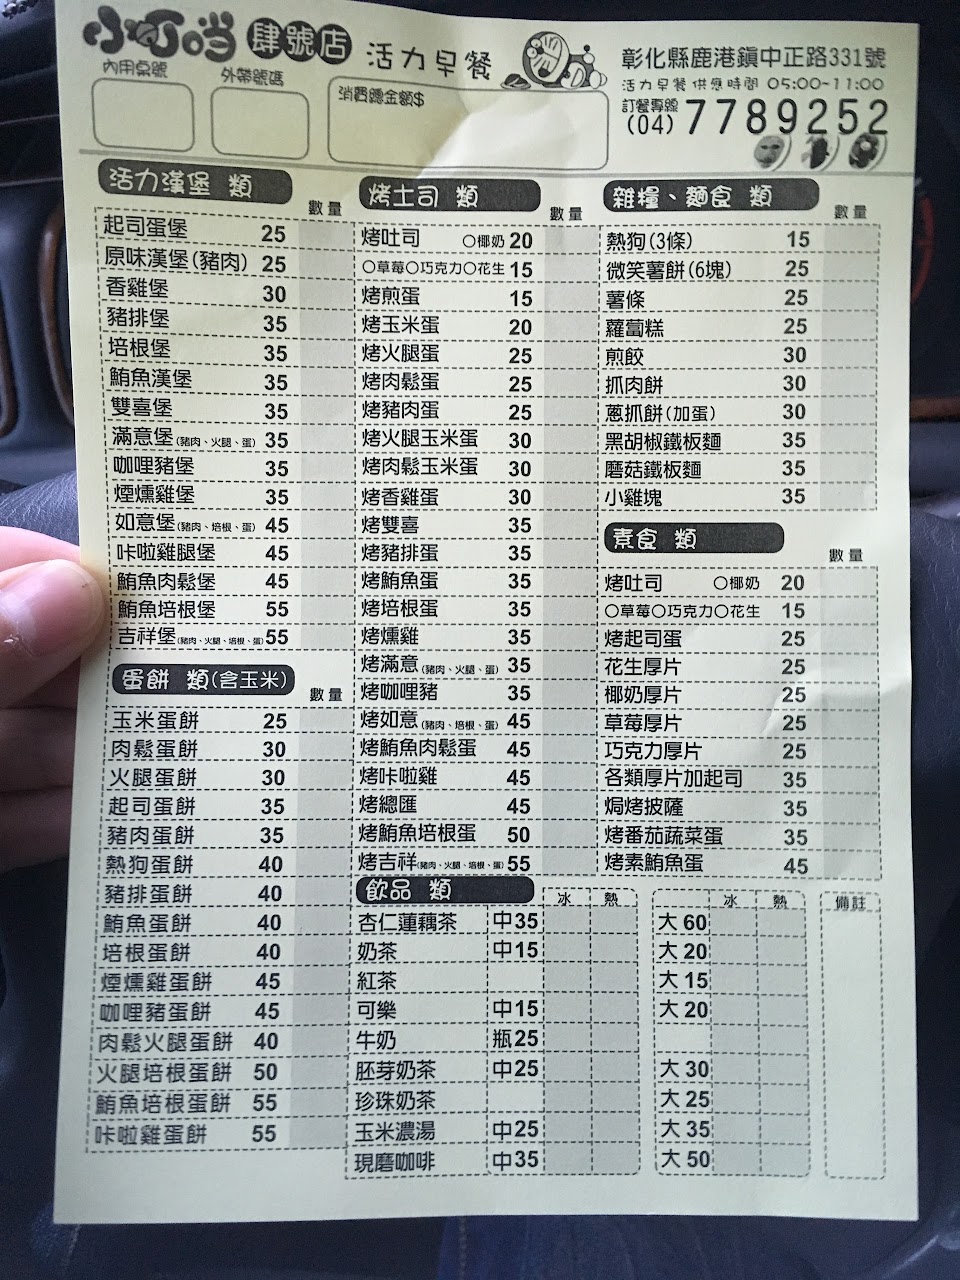 小叮噹 肆號店 活力早餐
彰化縣鹿港鎮中正路331號
活力早餐供應時間 05:00~11:00
訂餐專線 (04) 7789252
內用桌號
外帶號碼
消費總金額$
活力漢堡 類
數量
起司蛋堡 25
原味漢堡(豬肉) 25
香雞堡 30
豬排堡 35
培根堡 35
鮪魚漢堡 35
雙喜堡 35
滿意堡(豬肉、火腿、蛋) 35
咖哩豬堡 35
煙燻雞堡 35
如意堡(豬肉、培根、蛋) 45
咔啦雞腿堡 45
鮪魚肉鬆堡 45
鮪魚培根堡 55
吉祥堡(豬肉、火腿、培根、蛋) 55
蛋餅 類(含玉米)
數量
玉米蛋餅 25
肉鬆蛋餅 30
火腿蛋餅 30
起司蛋餅 35
豬肉蛋餅 35
熱狗蛋餅 40
豬排蛋餅 40
鮪魚蛋餅 40
培根蛋餅 40
煙燻雞蛋餅 45
咖哩豬蛋餅 45
肉鬆火腿蛋餅 40
火腿培根蛋餅 50
鮪魚培根蛋餅 55
咔啦雞蛋餅 55
烤土司 類
數量
烤吐司 〇椰奶 20
〇草莓〇巧克力〇花生 15
烤煎蛋 15
烤玉米蛋 20
烤火腿蛋 25
烤肉鬆蛋 25
烤豬肉蛋 25
烤火腿玉米蛋 30
烤肉鬆玉米蛋 30
烤香雞蛋 30
烤雙喜 35
烤豬排蛋 35
烤鮪魚蛋 35
烤培根蛋 35
烤燻雞 35
烤滿意(豬肉、火腿、蛋) 35
烤咖哩豬 35
烤如意(豬肉、培根、蛋) 45
烤鮪魚肉鬆蛋 45
烤咔啦雞 45
烤總匯 45
烤鮪魚培根蛋 50
烤吉祥(豬肉、火腿、培根、蛋) 55
雜糧、麵食 類
數量
熱狗(3條) 15
微笑薯餅(6塊) 25
薯條 25
蘿蔔糕 25
煎餃 30
抓肉餅 30
蔥抓餅(加蛋) 30
黑胡椒鐵板麵 35
磨菇鐵板麵 35
小雞塊 35
素食 類
數量
烤吐司 〇椰奶 20
〇草莓〇巧克力〇花生 15
烤起司蛋 25
花生厚片 25
椰奶厚片 25
草莓厚片 25
巧克力厚片 25
各類厚片加起司 35
焗烤披薩 35
烤番茄蔬菜蛋 35
烤素鮪魚蛋 45
飲品 類 冰 熱 冰 熱 備註
杏仁蓮藕茶 中35 大60
奶茶 中15 大20
紅茶 大15
可樂 中15 大20
牛奶 瓶25
胚芽奶茶 中25 大30
珍珠奶茶 大25
玉米濃湯 中25 大35
現磨咖啡 中35 大50